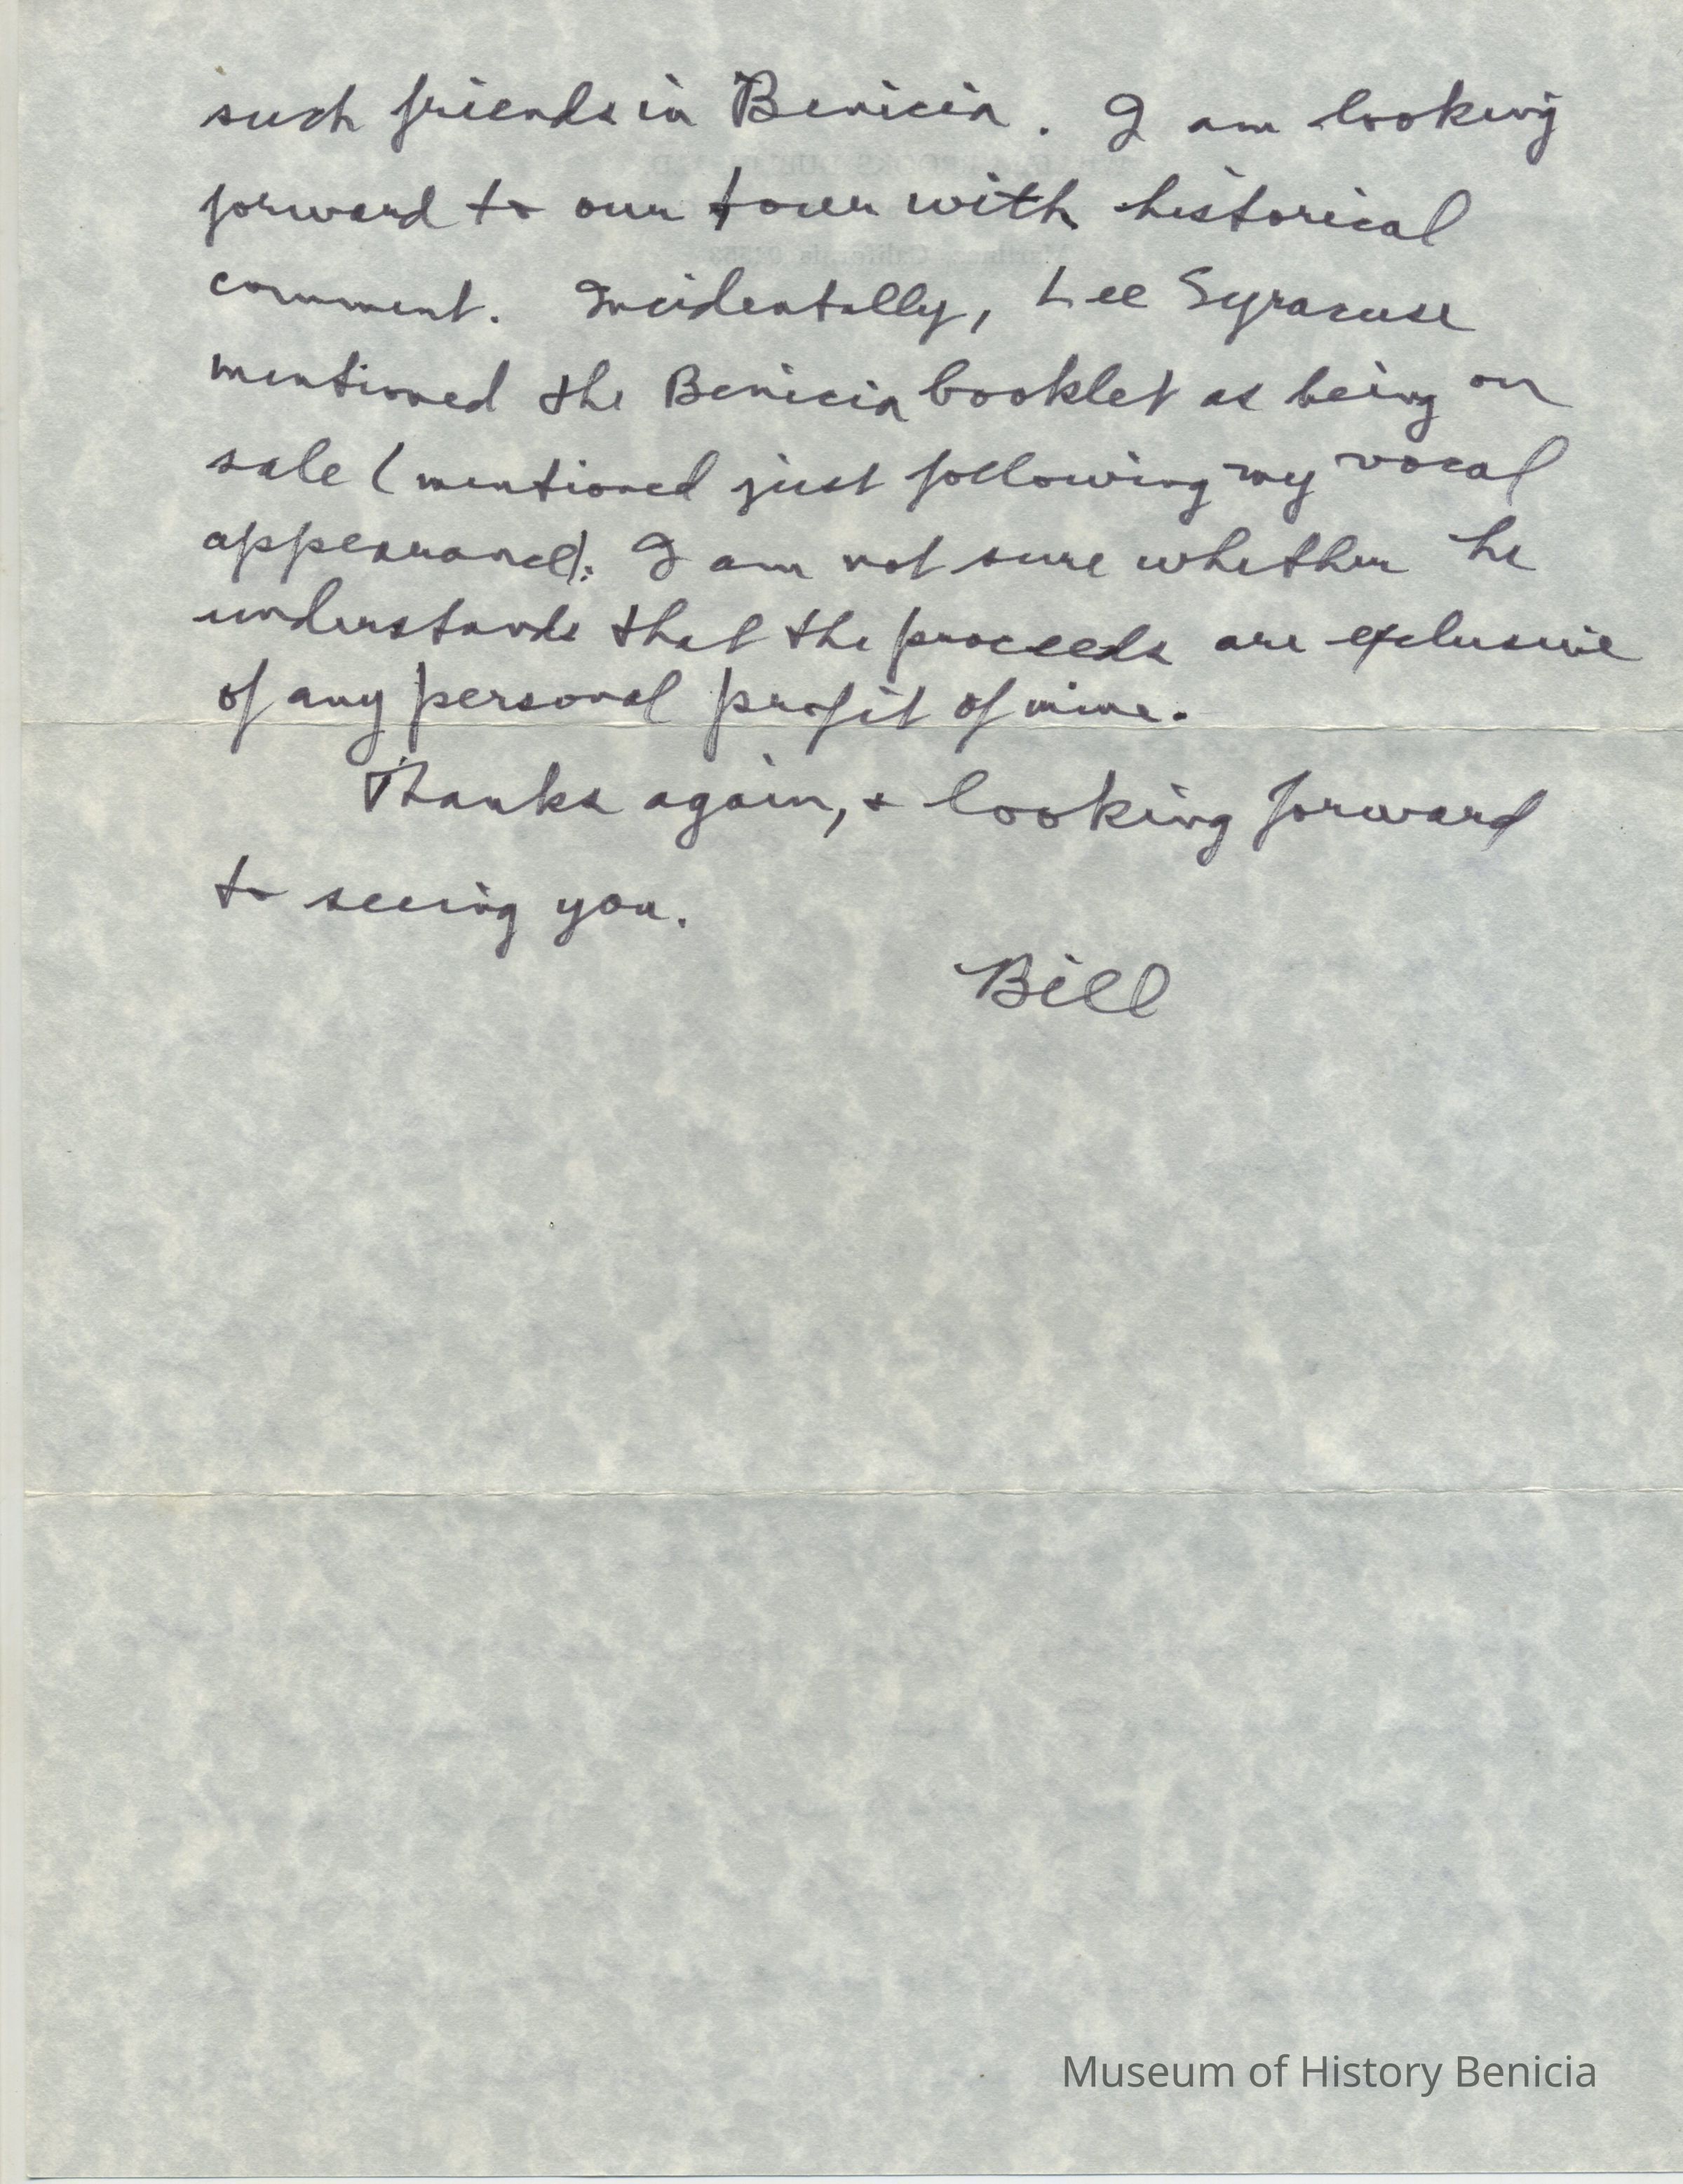 such friends in Benicia. I am looking
forward to our tour with historical
comment. Incidentally, Lee Syracuse
mentioned the Benicia booklet as being on
sale (mentioned just following my vocal
appearance). I am not sure whether he
understands that the proceeds are exclusive
of any personal profit of mine.
Thanks again, & looking forward
to seeing you.
Bill
Museum of History Benicia